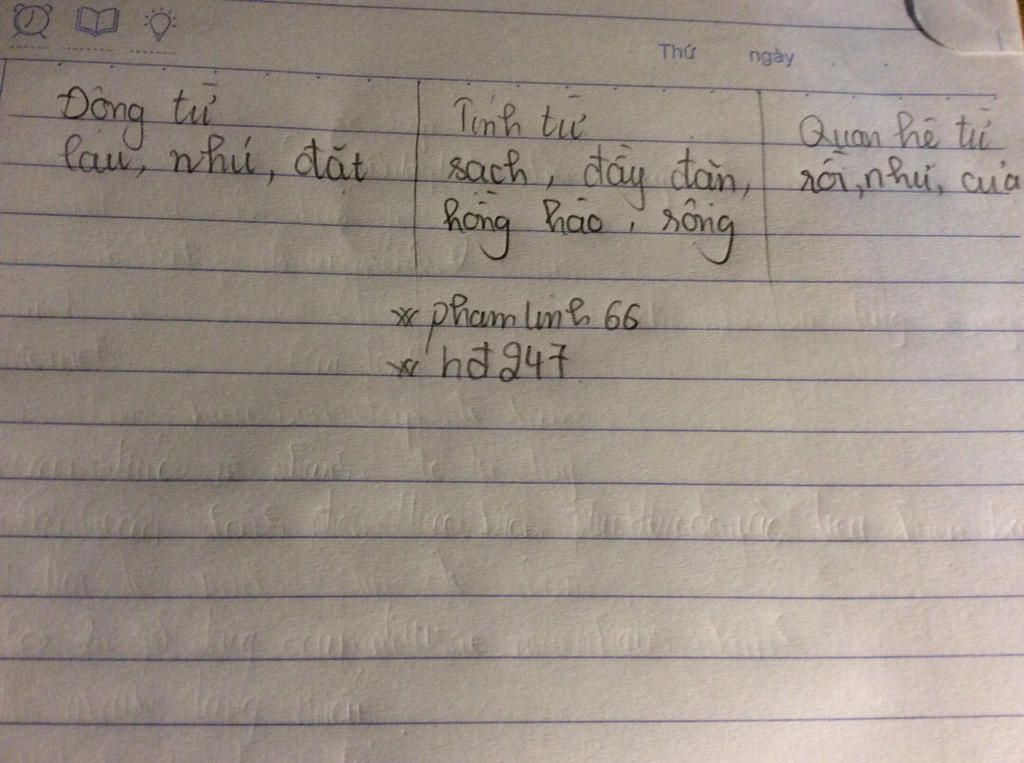 Thứ ngày
Động từ Tính từ Quan hệ từ
lau, như, đặt sạch, đầy đặn, rồi, như, của
hồng hào, rộng
* phamlinh66
* hđ247